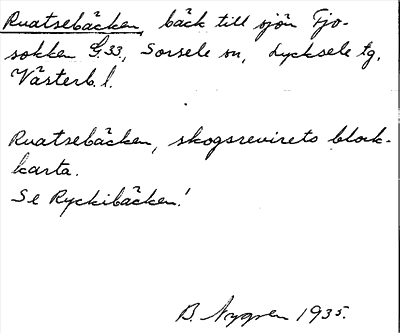 Ruatsebäcken, bäck till sjön Tjo-
sokken G.33, Sorsele sn, Lycksele tg.
Västerb. l.
Ruatsebäcken, skogsrevirets block-
karta.
Se Ryckibäcken!
B. Nygren 1935.